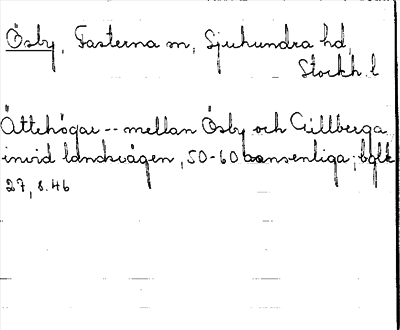 Ösby, Fasterna sn, Sjuhundra hd,
Stockh. l
Ättehögar -- mellan Ösby och Gillberga
invid landsvägen, 50-60 ansenliga;
27, s. 46